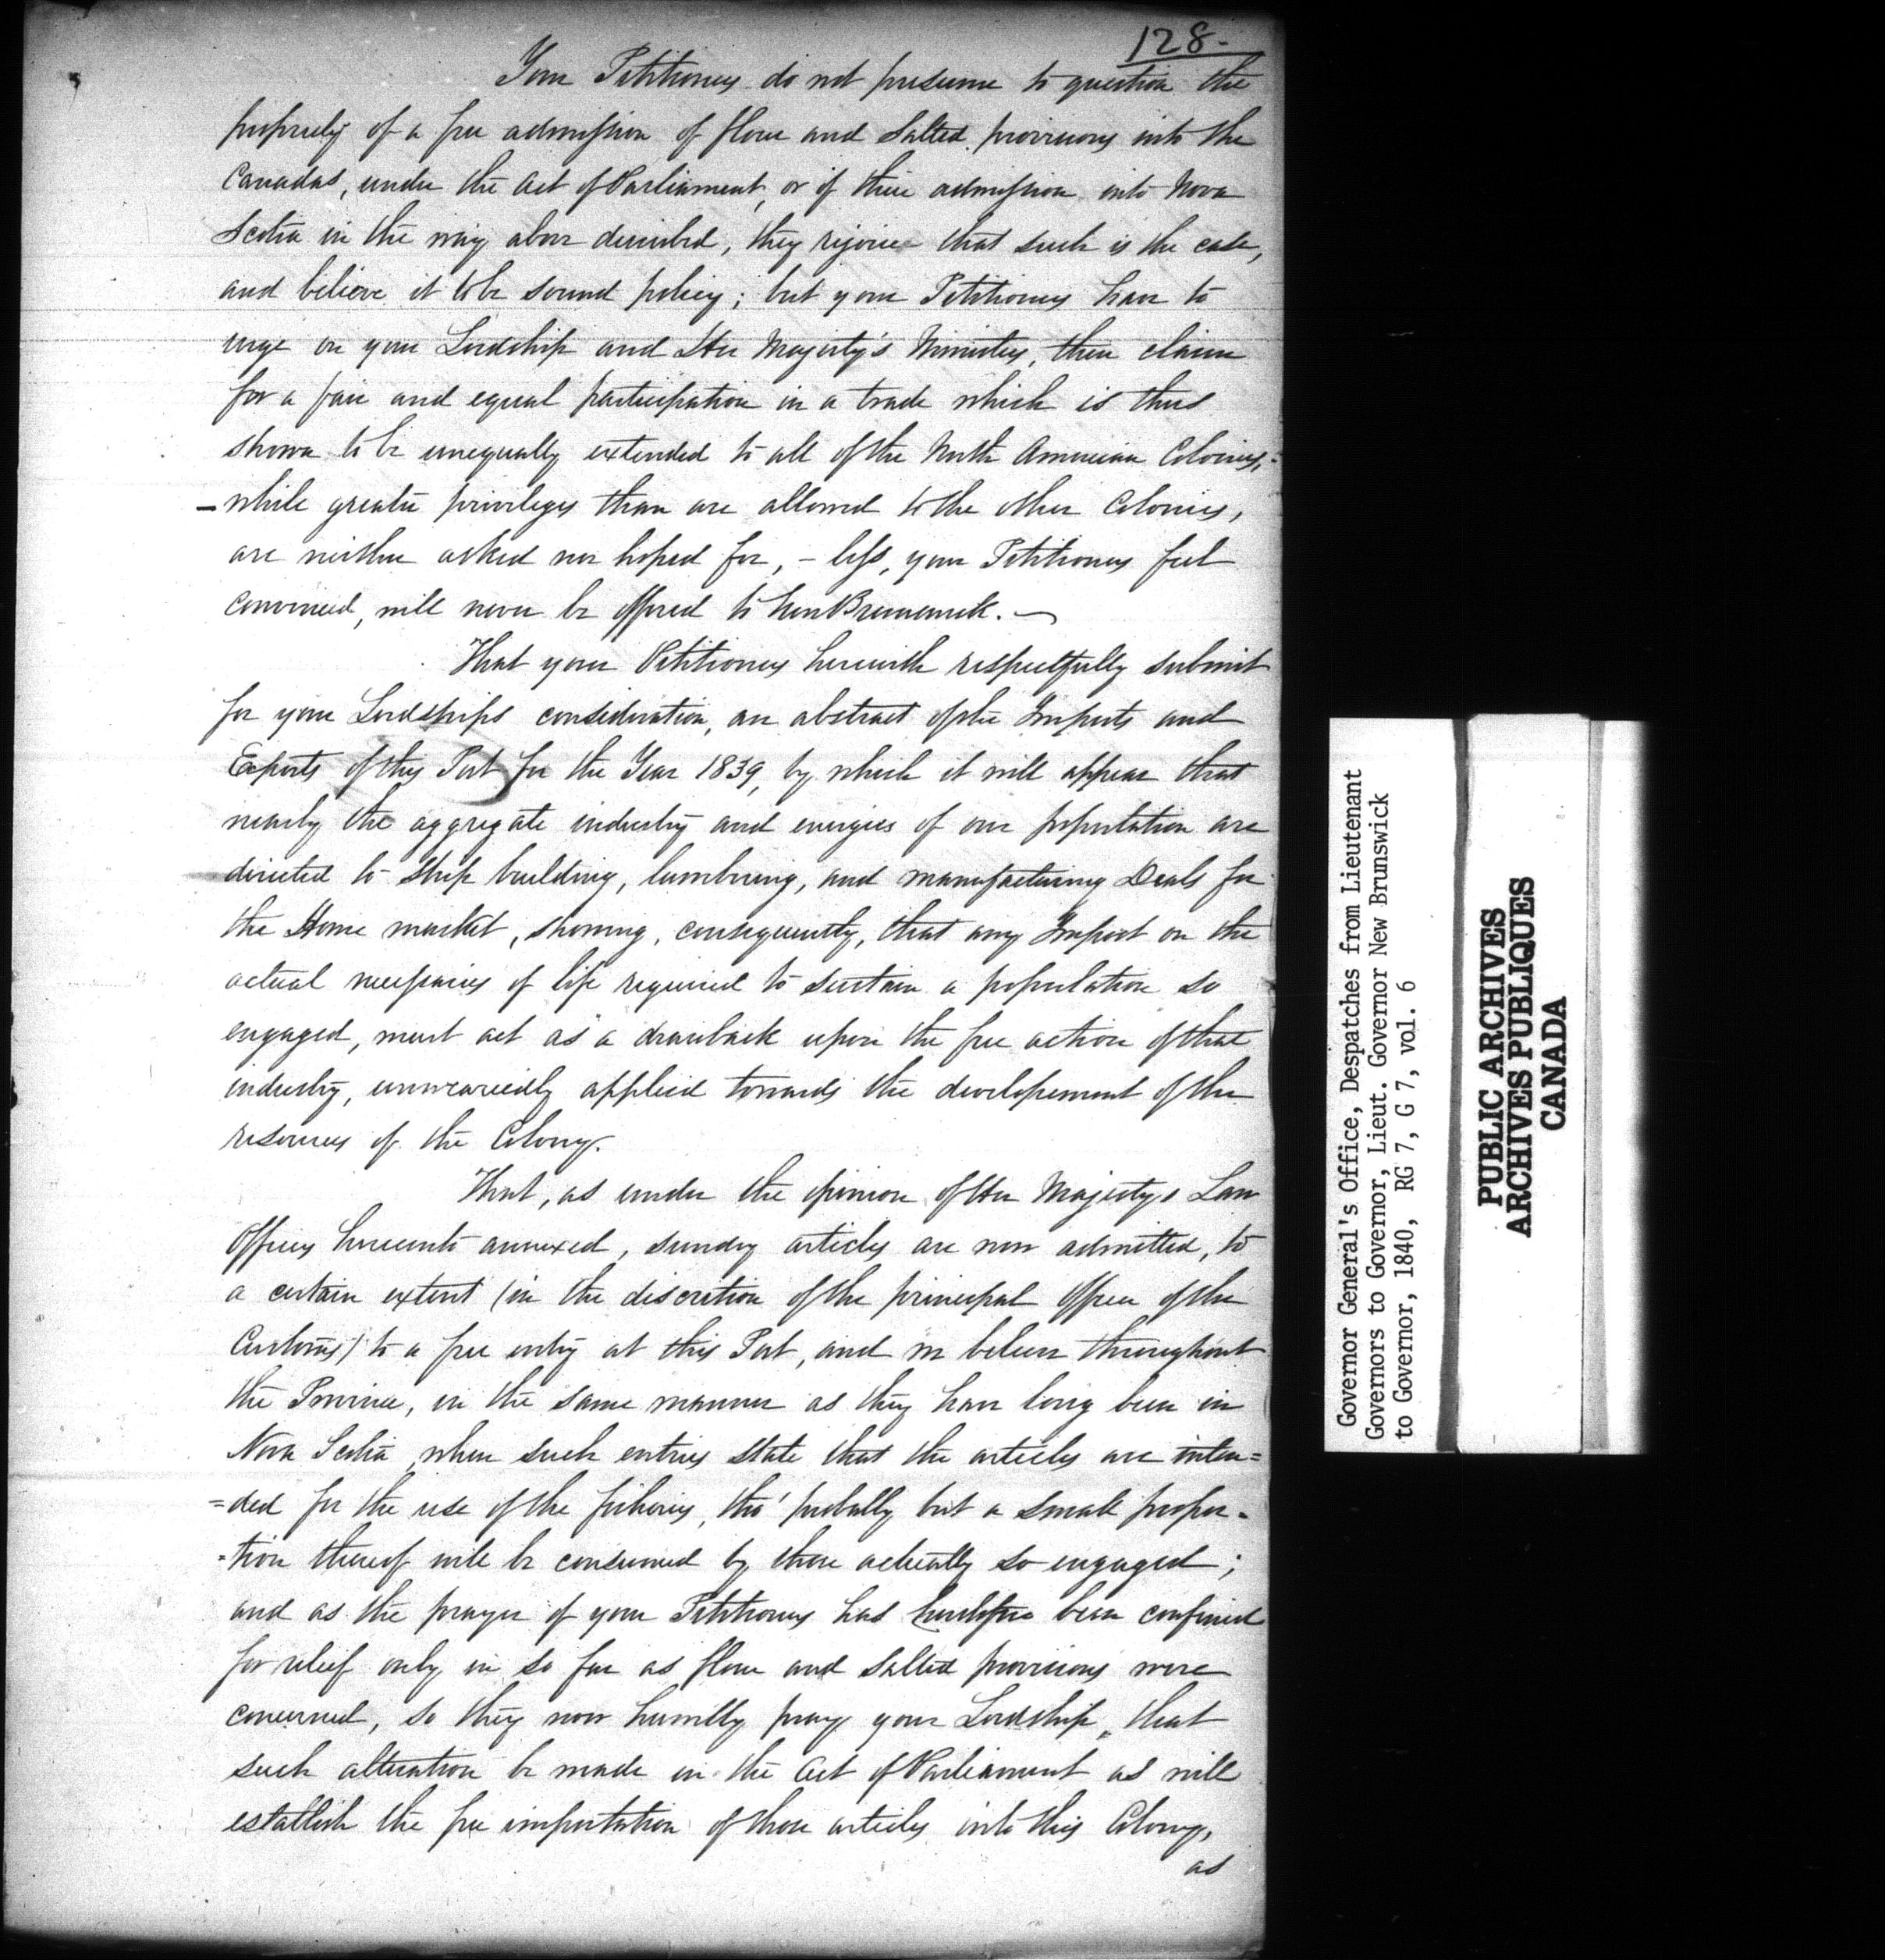 128-
Your Petitioners do not presume to question the
propriety of a free admission of flour and Salted provisions into the
Canadas, under the Act of Parliament, or of their admission into Nova
Scotia in the way above described, they rejoice that such is the case,
and believe it to be sound policy; but your Petitioners have to
urge on your Lordship and Her Majesty's Ministers, their claim
for a fair and equal participation in a trade which is thus
shown to be unequally extended to all of the North American Colonies,=
-while greater privileges than are allowed to the other Colonies,
are neither asked nor hoped for, - less, your Petitioners feel
convinced, will never be offered to New Brunswick. -
That your Petitioners herewith respectfully submit
for your Lordships consideration, an abstract of the Imports and
Exports of this Port for the Year 1839, by which it will appear that
nearly the aggregate industry and energies of our population are
directed to Ship building, lumbering, and manufacturing Deals for
the Home market, showing, consequently, that any Impost on the
actual necessaries of life required to sustain a population so
engaged, must act as a drawback upon the free action of that
industry, unweariedly applied towards the developement of the
resources of the Colony.
That, as under the opinion of Her Majesty's Law
Officers hereunto annexed, sundry articles are now admitted, to
a certain extent (in the discretion of the principal Officer of the
Customs) to a free entry at this Port, and we believe throughout
the Province, in the same manner as they have long been in
Nova Scotia, when such entries state that the articles are inten=
=ded for the use of the fisheries, tho' probably but a small propor=
=tion thereof will be consumed by those actually so engaged;
and as the prayer of your Petitioners has heretofore been confined
for relief only in so far as flour and Salted provisions were
concerned, so they now humbly pray your Lordship, that
such alteration be made in the Act of Parliament as will
establish the free importation of those articles into this Colony,
as
Governor General's Office, Despatches from Lieutenant
Governors to Governor, Lieut. Governor New Brunswick
to Governor, 1840, RG 7, G 7, vol. 6
PUBLIC ARCHIVES
ARCHIVES PUBLIQUES
CANADA